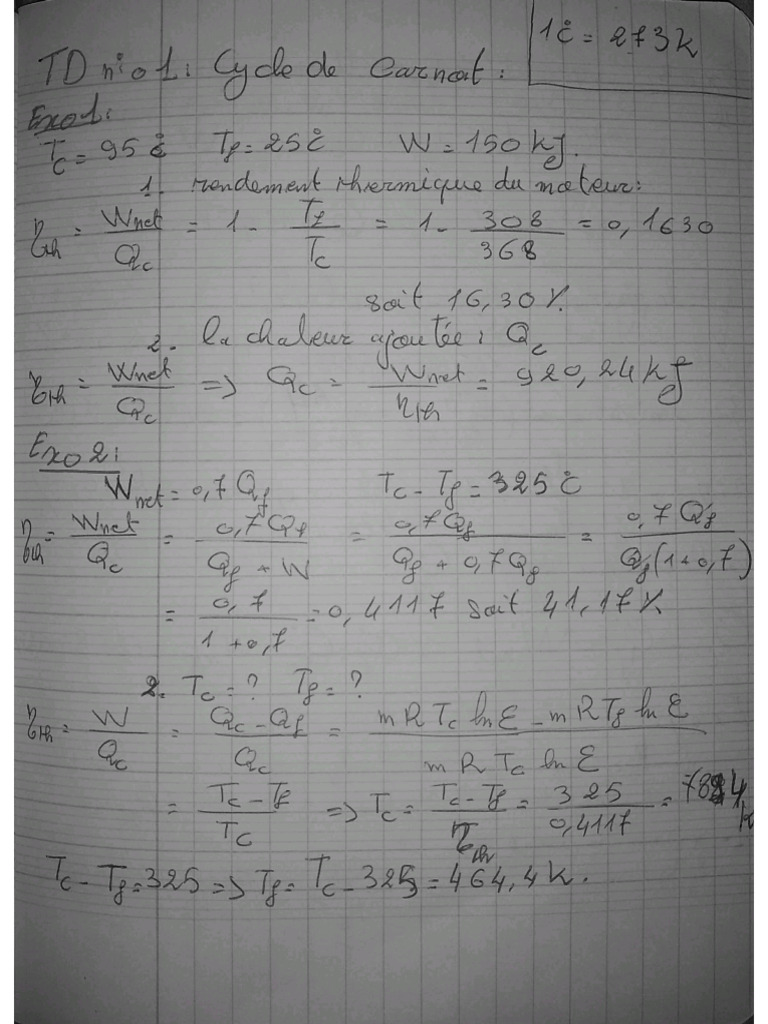 1°C = 273K
TD n°01: Cycle de Carnot:
Exo1:
Tc = 95°C Tf = 25°C W = 150 kJ.
1. rendement thermique du moteur:
ηth = Wnet/Qc = 1 - Tf/Tc = 1 - 308/368 = 0,1630
soit 16,30%
2. la chaleur ajoutée: Qc
ηth = Wnet/Qc => Qc = Wnet/ηth = 920,24 kJ
Exo2:
Wnet = 0,7 Qf Tc - Tf = 325°C
ηth = Wnet/Qc = 0,7Qf/(Qf + W) = 0,7Qf/(Qf + 0,7Qf) = 0,7 Qf/(Qf(1+0,7))
= 0,7/(1+0,7) = 0,4117 soit 41,17%
2. Tc = ? Tf = ?
ηth = W/Qc = (Qc - Qf)/Qc = (mRTc ln ε - mRTf ln ε)/(mRTc ln ε)
= (Tc - Tf)/Tc => Tc = (Tc - Tf)/ηth = 325/0,4117 = K
Tc - Tf = 325 => Tf = Tc - 325 = 464,4K.